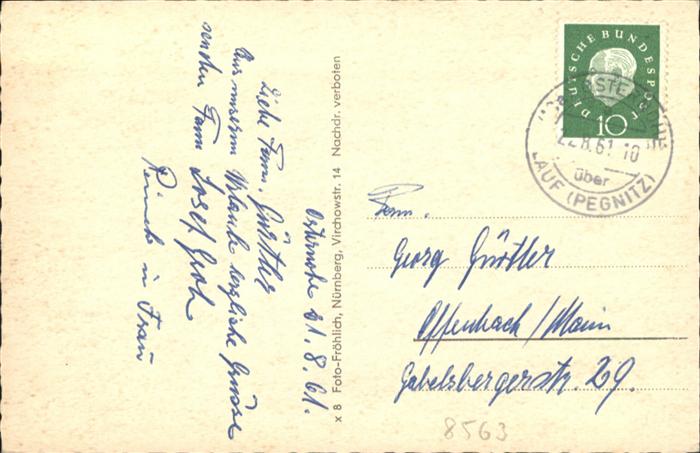 Osternohe 21.8.61.
Liebe Fam. Gürtler
Aus unserm Urlaub herzliche Grüsse
senden Fam Josef Groh
u. Frau
x 8 Foto-Fröhlich, Nürnberg, Virchowstr. 14 Nachdr. verboten
DEUTSCHE BUNDESPOST
10
22.8.61 10
über
LAUF (PEGNITZ)
Fam.
Georg Gürtler
Offenbach/Main
Gabelsbergerstr. 29.
8563